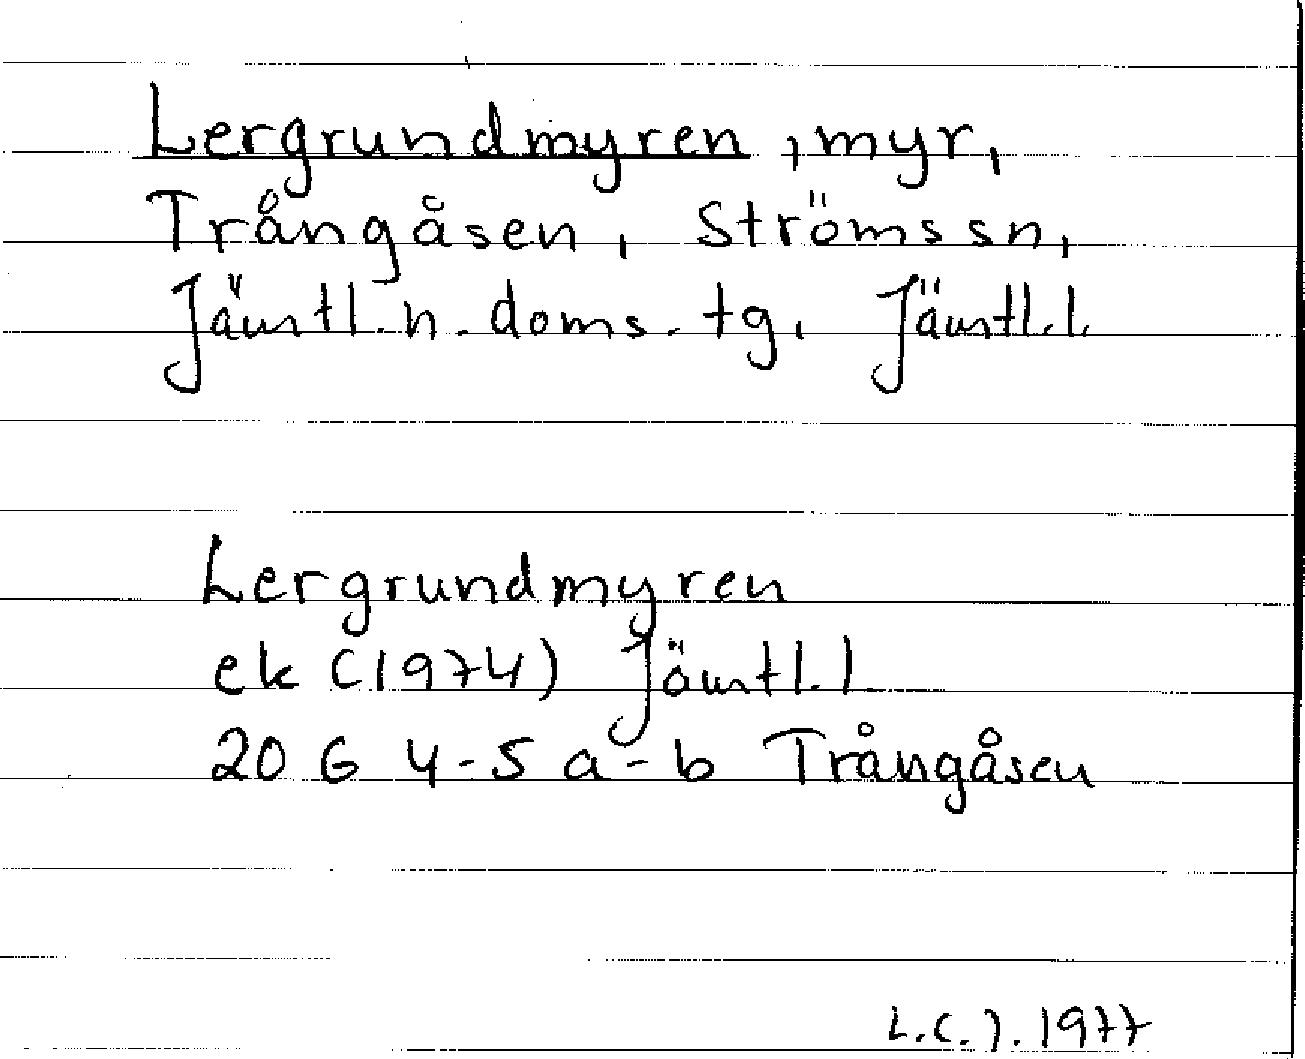 Lergrundmyren, myr,
Trångåsen, Ströms sn,
Jämtl. n. doms. tg, Jämtl. l.
Lergrundmyren
ek (1974) Jämtl. l
20 G 4-5 a-b Trångåsen
L.C.J. 1977